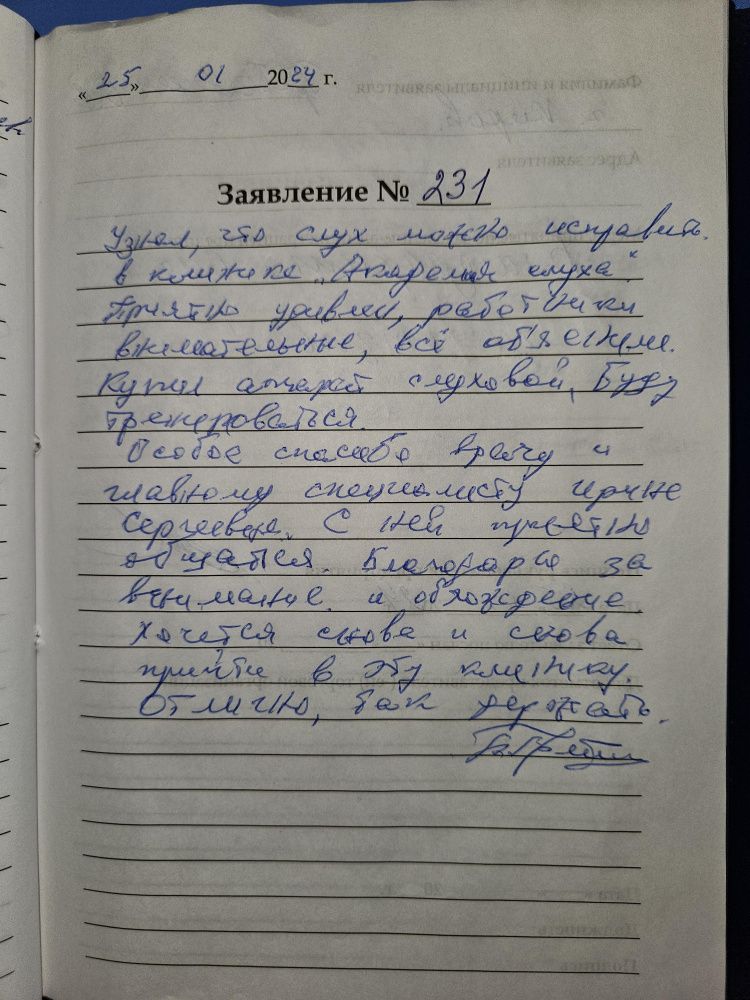 « 25 » 01 2024 г.
Заявление № 231
Узнал, что слух можно исправить
в клинике "Академия слуха".
Приятно удивлен, работники
внимательные, всё объяснили.
Купил аппарат слуховой, Буду
тренероваться.
Особое спасибо врачу и
главному специалисту Ирине
Сергеевне. С ней приятно
общаться. Благодарю за
внимание и обхождение.
Хочется снова и снова
прийти в эту клинику.
Отлично, так держать.